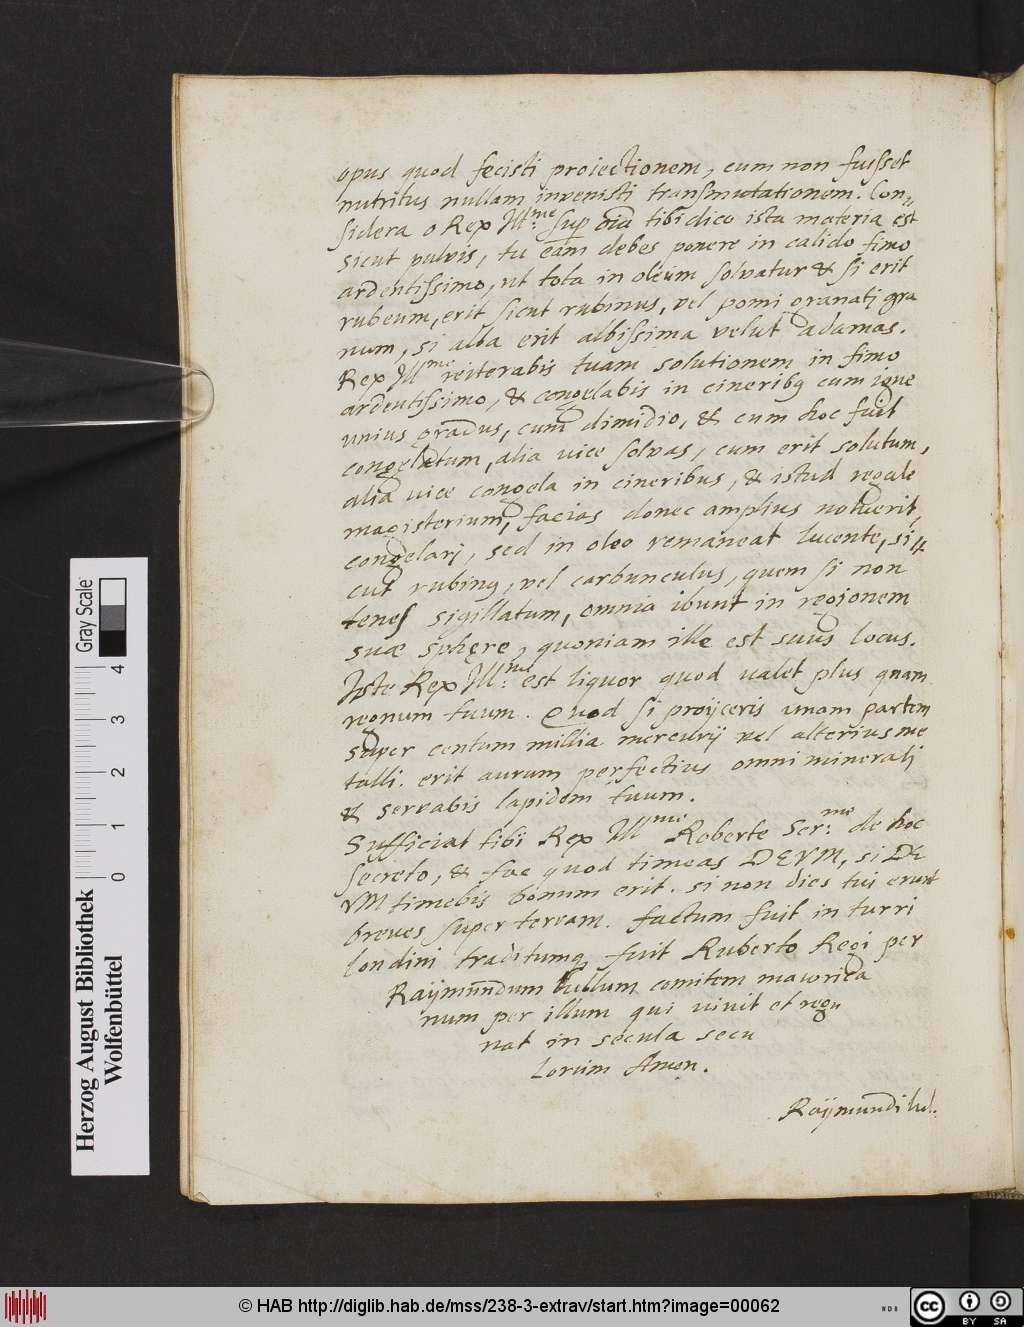 opus quod fecisti proiectionem, cum non fuisset
nutritus nullam invenisti transmutationem. Con„
sidera o Rex Ill:me sup oīa tibi dico ista materia est
sicut pulvis, tu eam debes ponere in calido fimo
ardentissimo, ut tota in oleum solvatur & si erit
rubeum, erit sicut rubinus, vel pomi granati gra
num, si alba erit albissima velut adamas.
Rex Ill:mi reiterabis tuam solutionem in fimo
ardentissimo, & congelabis in cineribq cum igne
unius gradus, cum dimidio, & cum hoc fuit
congelatum, alia vice solvas, cum erit solutum,
alia vice congela in cineribus, & istud regale
magisterium, facias donec amplius
congelari, sed in oleo remaneat lucente, si
cut rubinq, vel carbunculus, quem si non
tenes sigillatum, omnia ibunt in regionem
suæ sphęrę, quoniam ille est suus locus.
Iste Rex Ill:me est liquor quod valet plus quam
regnum tuum. Quod si proijceris unam partem
super centum millia mercurij vel alterius me
talli. erit aurum perfectius omni minerali
& servabis lapidem tuum.
Sufficiat tibi Rex Ill:me Roberte Ser:me de hoc
secreto, & fac quod timeas DEVM, si DE
VM timebis bonum erit. si non dies tui erunt
breves super terram. factum fuit in turri
londini traditumq fuit Ruberto Regi per
Raijmundum lullum comitem maiorica
num per illum qui vivit et regn
nat in secula secu
lorum Amen.
Raijmundi lul.
Gray Scale
4
3
2
1
0
Herzog August Bibliothek
Wolfenbüttel
© HAB http://diglib.hab.de/mss/238-3-extrav/start.htm?image=00062
NDB
cc
BY SA